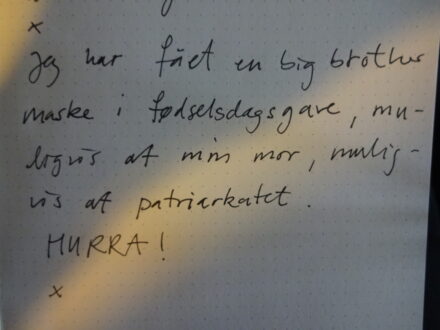 x
Jeg har fået en big brother
maske i fødselsdagsgave, mu-
ligvis af min mor, mulig-
vis af patriarkatet.
HURRA!
x